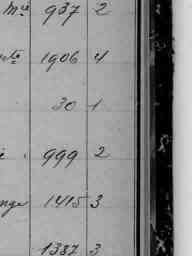 Mce 937 2
1906 4
30 1
999 2
nge 1415 3
1387 3